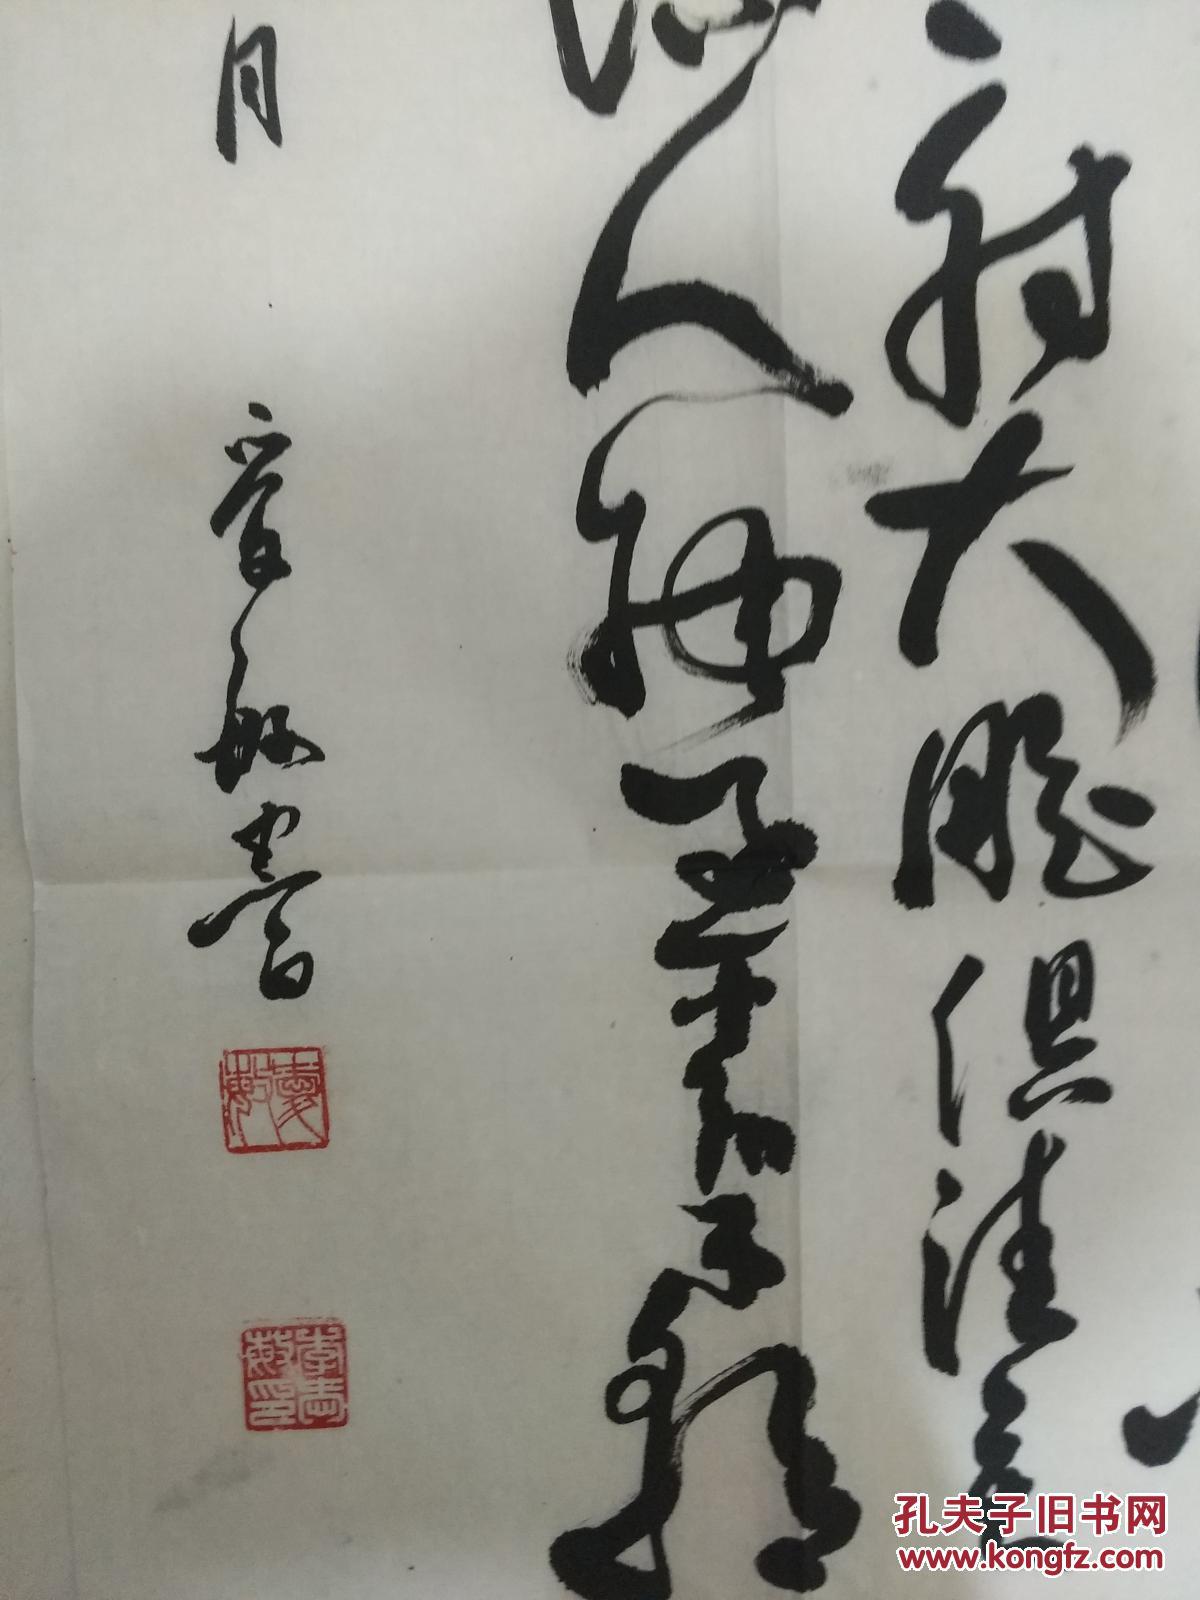 射大雕俱往矣
人物还看今朝
月 爱敏书
爱敏
孔夫子旧书网
www.kongfz.com